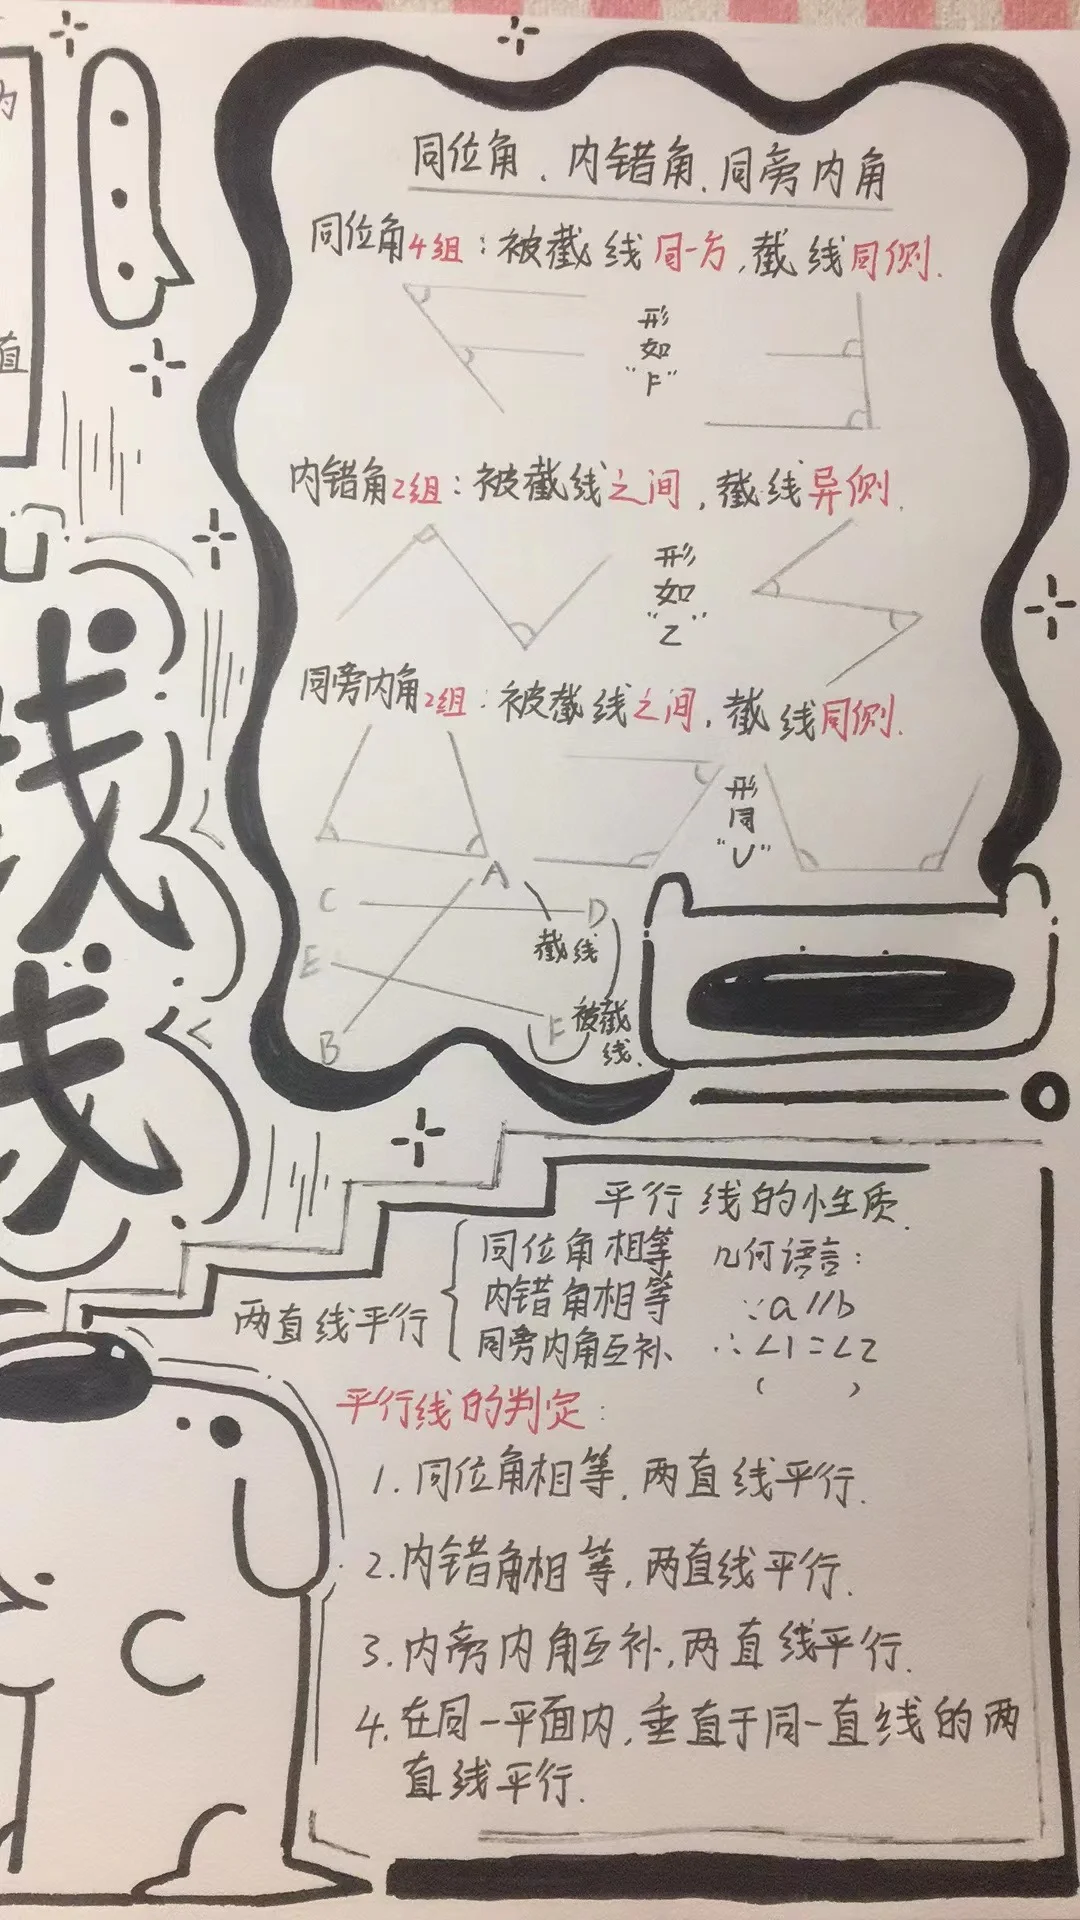 为
值
线
线
同位角、内错角、同旁内角
同位角4组:被截线同一方,截线同侧.
形如"F"
内错角2组:被截线之间,截线异侧.
形如"Z"
同旁内角2组:被截线之间,截线同侧.
形同"U"
A
C
D
截线
E
F
被截线.
B
平行线的性质.
两直线平行
同位角相等
内错角相等
同旁内角互补
几何语言:
∵a//b
∴∠1=∠2
( )
平行线的判定:
1.同位角相等,两直线平行.
2.内错角相等,两直线平行.
3.内旁内角互补,两直线平行.
4.在同一平面内,垂直于同一直线的两
直线平行.